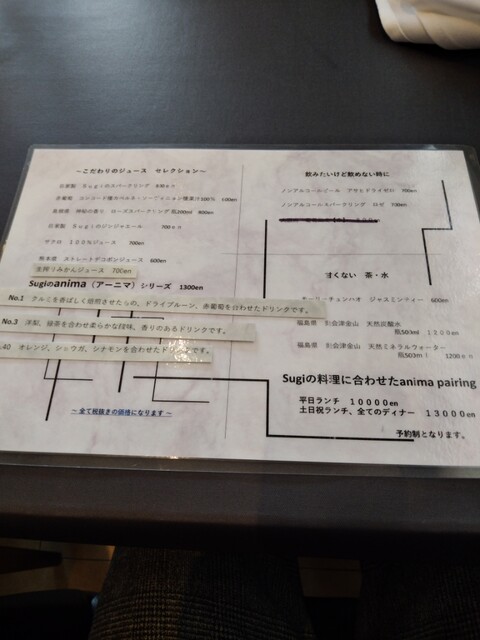 ～こだわりのジュース　セレクション～
自家製　Ｓｕｇｉのスパークリング
赤葡萄　コンコード種&カベルネ・ソーヴィニョン種果汁100%　600en
ローズスパークリング 瓶200ml　800en
自家製　Ｓｕｇｉのジンジャエール　700en
ザクロ　１００％ジュース　700en
熊本産　ストレートデコポンジュース　600en
生搾りみかんジュース　700en
Sugiのanima（アーニマ）シリーズ　1300en
No.1　クルミを香ばしく焙煎させたもの、ドライプルーン、赤葡萄を合わせたドリンクです。
No.3　洋梨、緑茶を合わせ柔らかな酸味、香りのあるドリンクです。
.40　オレンジ、ショウガ、シナモンを合わせたドリンクです。
～全て税抜きの価格になります～
飲みたいけど飲めない時に
ノンアルコールビール　アサヒドライゼロ　700en
ノンアルコールスパークリング　ロゼ　700en
甘くない　茶・水
ジャスミンティー　600en
福島県　奥会津金山　天然炭酸水
瓶500ml　１２００en
福島県　奥会津金山　天然ミネラルウォーター
瓶500ml　1200en
Sugiの料理に合わせたanima pairing
平日ランチ　１００００en
土日祝ランチ、全てのディナー　１３０００en
予約制となります。